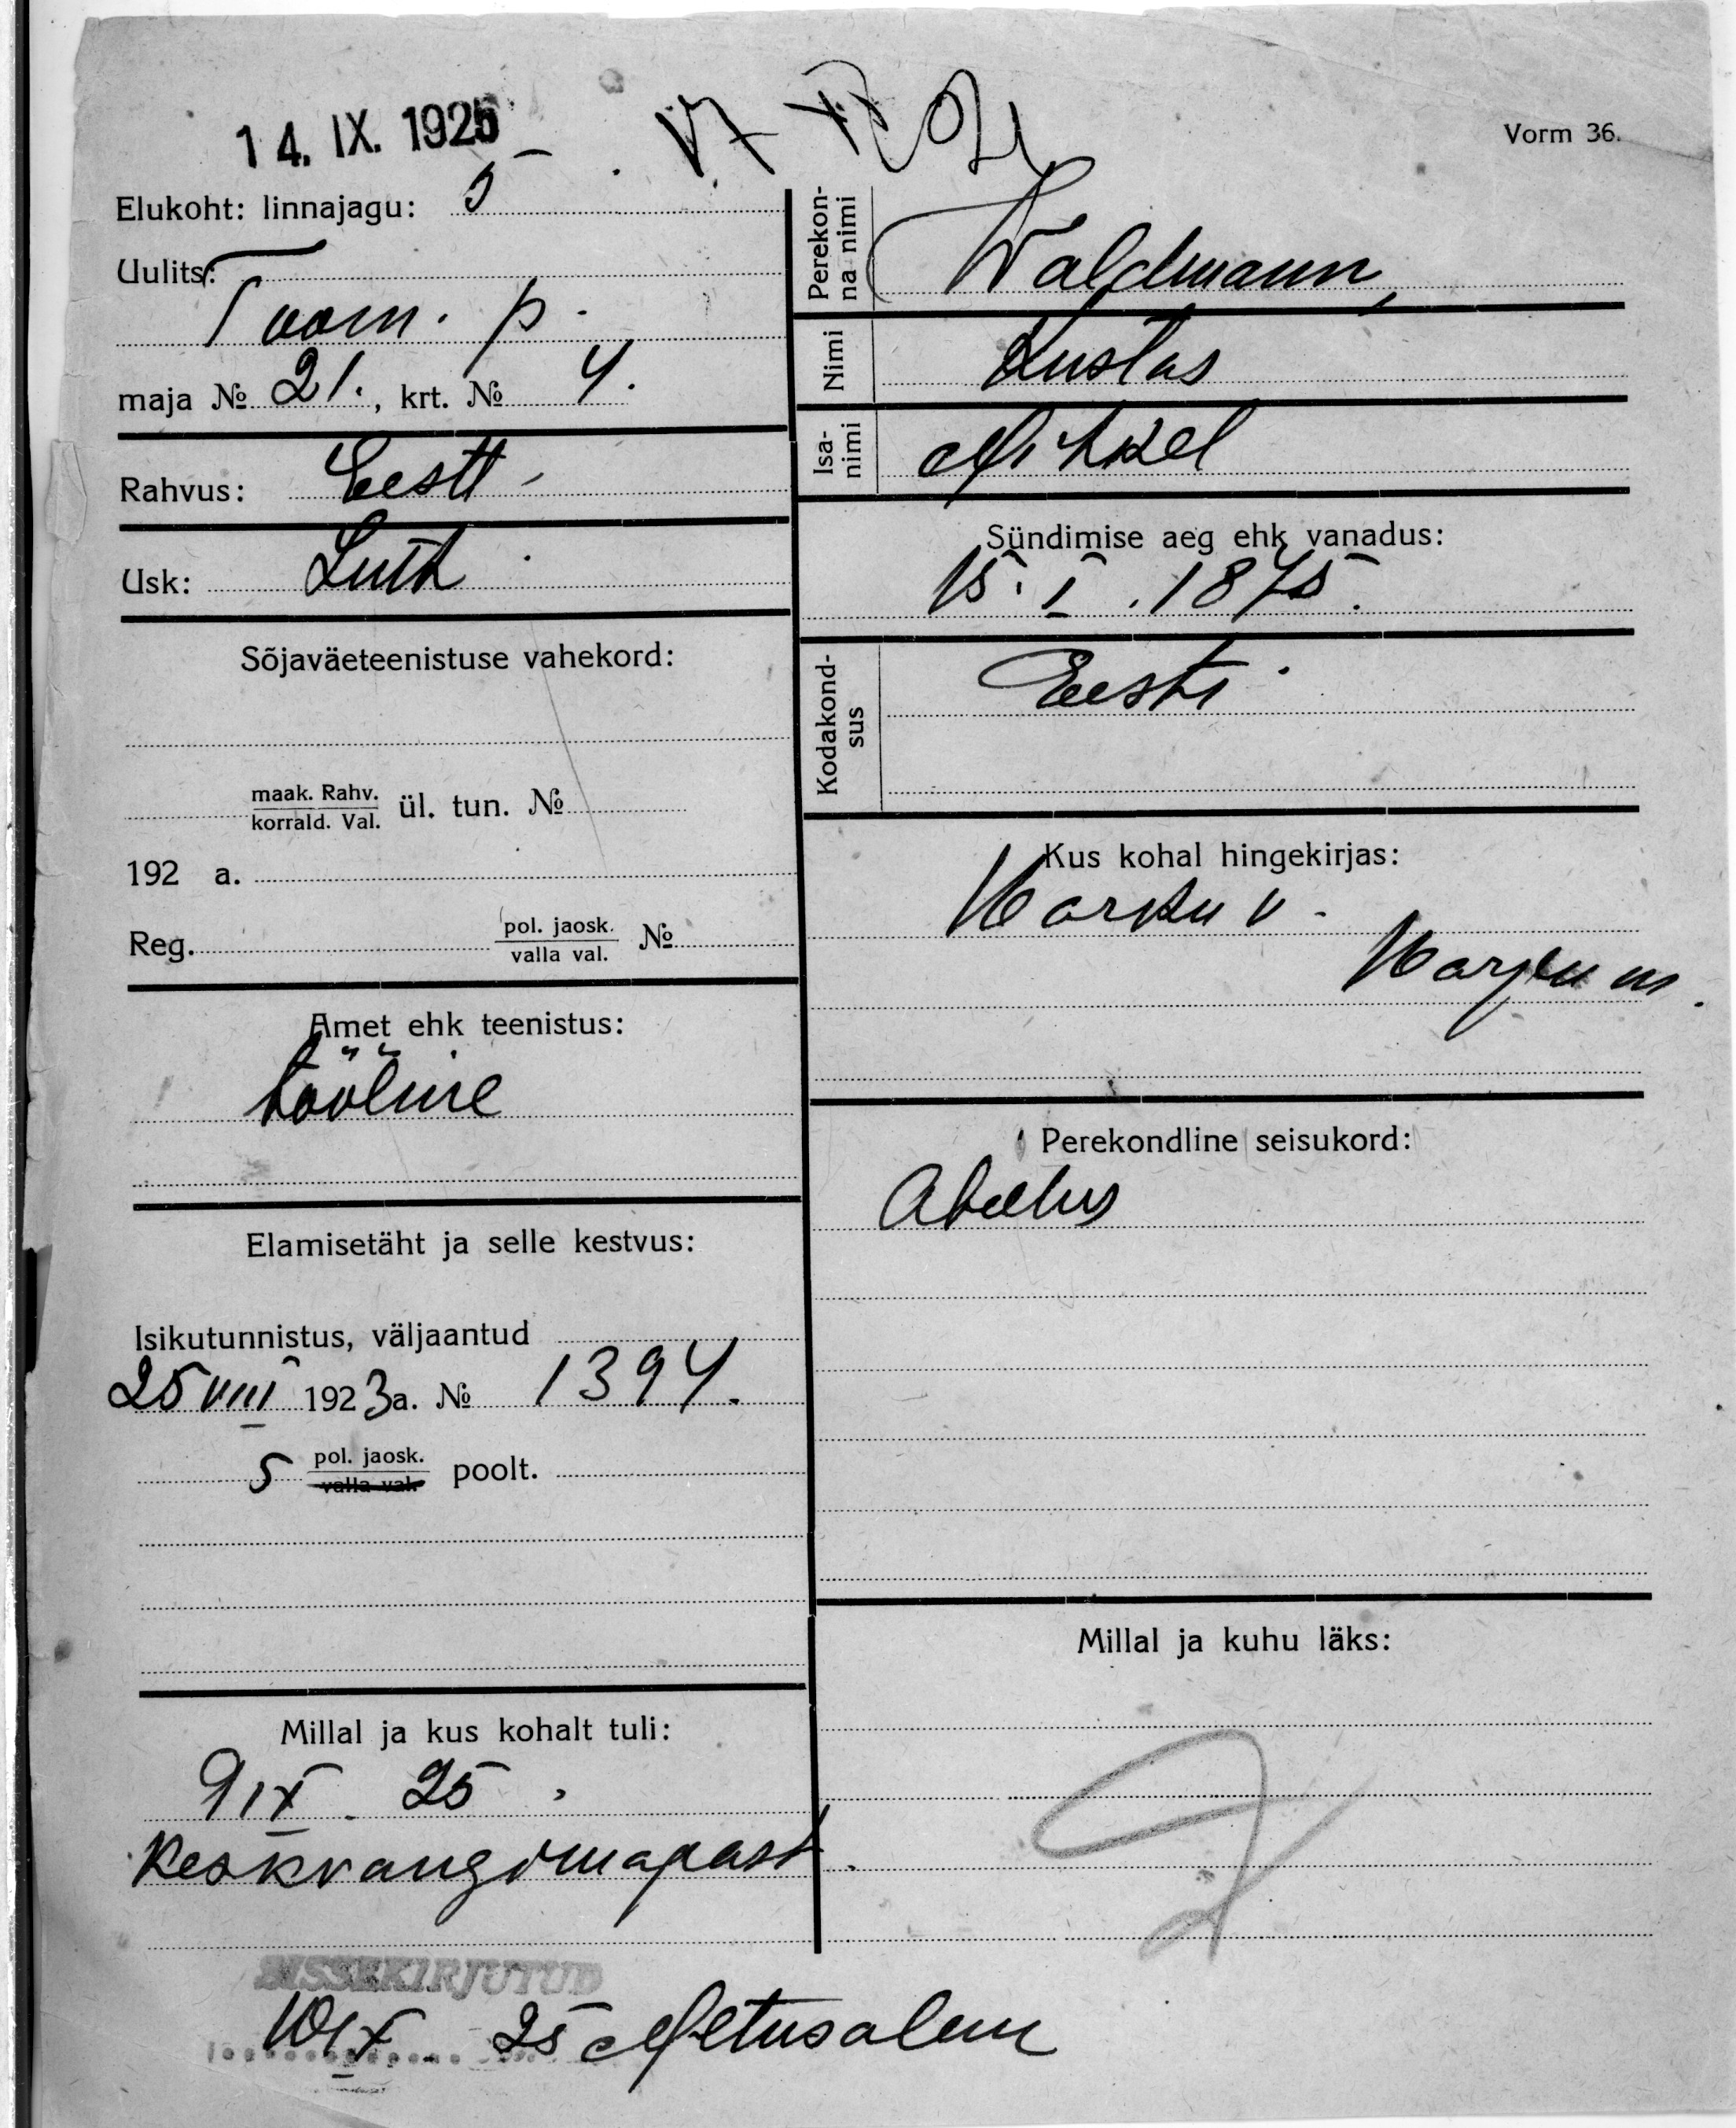 14. IX. 1925
Vorm 36.
Elukoht: linnajagu: 5
Uulits:
Toom. p.
maja № 21., krt. № 4.
Rahvus: Eesti
Usk: Luth
Sõjaväeteenistuse vahekord:
maak. Rahv.
korrald. Val. ül. tun. №
192 a.
Reg. pol. jaosk.
valla val. №
Amet ehk teenistus:
tööline
Elamisetäht ja selle kestvus:
Isikutunnistus, väljaantud
25 VIII 1923 a. № 1394.
5 pol. jaosk.
valla val. poolt.
Millal ja kus kohalt tuli:
9 IX. 25.
Keskvangimajast.
SISSEKIRJUTUD
10 IX. 25 Metusalem
Perekon-
na nimi Waldmann,
Nimi Kustas
Isa-
nimi Mihkel
Sündimise aeg ehk vanadus:
15. I. 1875.
Kodakond-
sus Eesti
Kus kohal hingekirjas:
Harku v.
Harju m.
Perekondline seisukord:
Abielus
Millal ja kuhu läks: